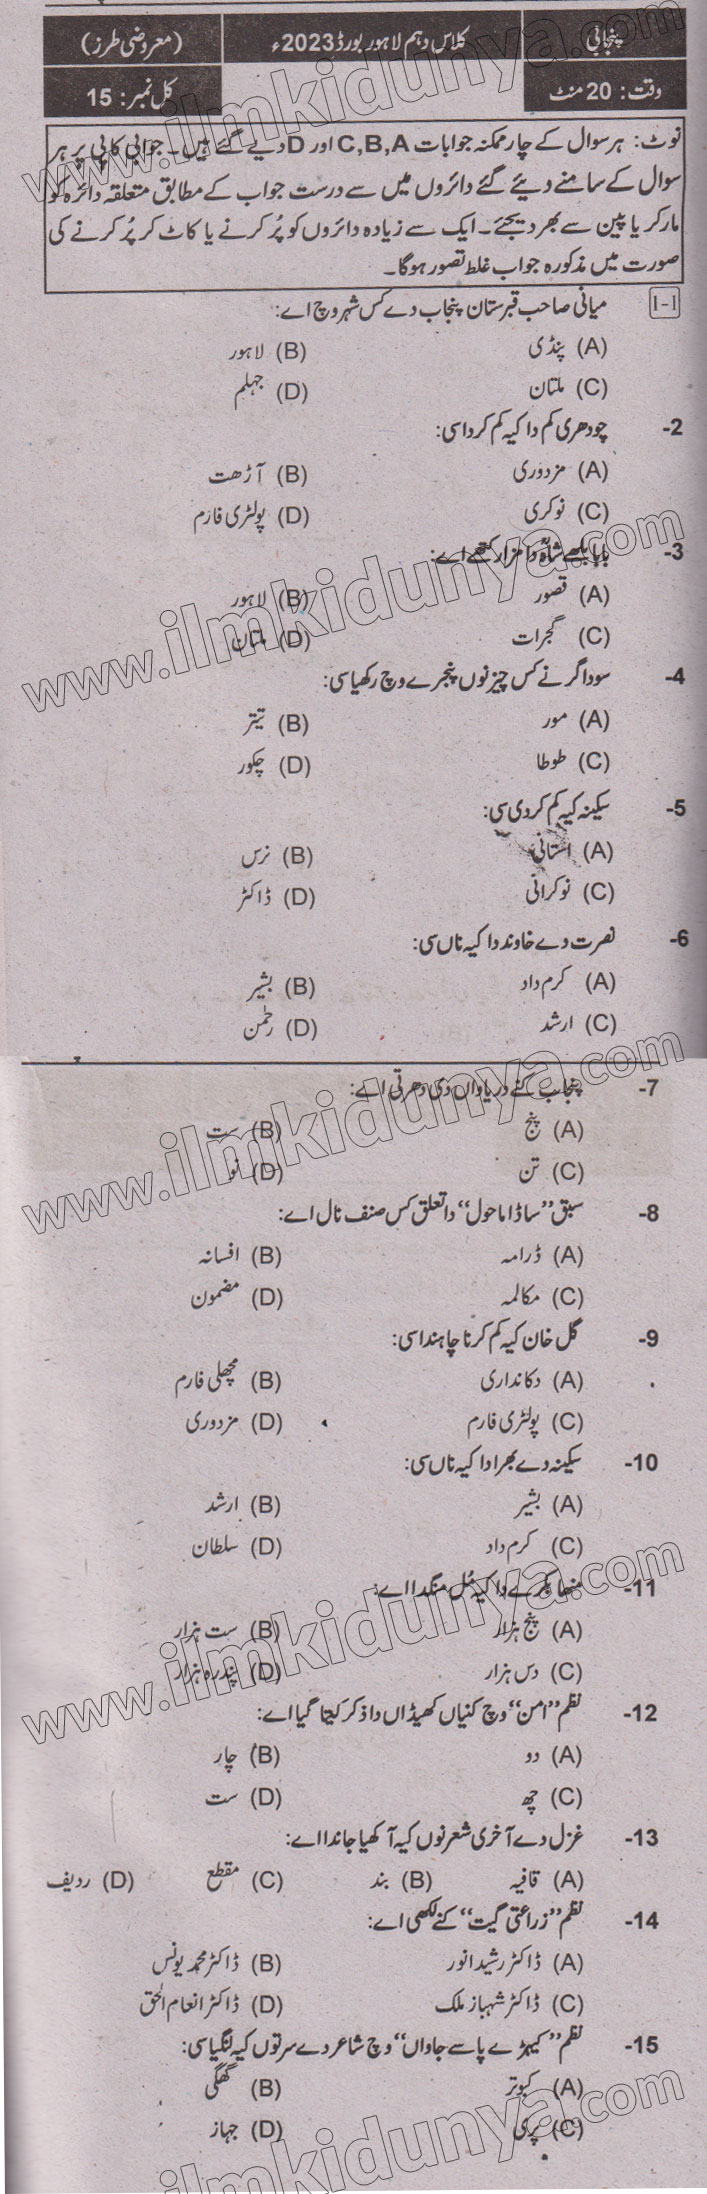 پنجابی
کلاس دہم لاہور بورڈ 2023ء
(معروضی طرز)
وقت: 20 منٹ
کل نمبر: 15
نوٹ: ہر سوال کے چار ممکنہ جوابات C,B,A اور D دیے گئے ہیں۔ جوابی کاپی پر ہر
سوال کے سامنے دیئے گئے دائروں میں سے درست جواب کے مطابق متعلقہ دائرہ کو
مارکر یا پین سے بھر دیجئے۔ ایک سے زیادہ دائروں کو پُر کرنے یا کاٹ کر پُر کرنے کی
صورت میں مذکورہ جواب غلط تصور ہوگا۔
1-I میانی صاحب قبرستان پنجاب دے کس شہر وچ اے:
(A) پنڈی (B) لاہور
(C) ملتان (D) جہلم
-2 چودھری کم دا کیہ کم کردا سی:
(A) مزدوری (B) آڑھت
(C) نوکری (D) پولٹری فارم
-3 بابا بلھے شاہؒ دا مزار کتھے اے:
(A) قصور (B) لاہور
(C) گجرات (D) ملتان
-4 سوداگر نے کس چیز نوں پنجرے وچ رکھیا سی:
(A) مور (B) تیتر
(C) طوطا (D) چکور
-5 سکینہ کیہ کم کردی سی:
(A) استانی (B) نرس
(C) نوکرانی (D) ڈاکٹر
-6 نصرت دے خاوند دا کیہ ناں سی:
(A) کرم داد (B) بشیر
(C) ارشد (D) رحمٰن
-7 پنجاب کنے دریاواں دی دھرتی اے:
(A) پنج (B) ست
(C) تن (D) نو
-8 سبق ”ساڈا ماحول“ دا تعلق کس صنف نال اے:
(A) ڈرامہ (B) افسانہ
(C) مکالمہ (D) مضمون
-9 گل خان کیہ کم کرنا چاہندا سی:
(A) دکانداری (B) مچھلی فارم
(C) پولٹری فارم (D) مزدوری
-10 سکینہ دے بھرا دا کیہ ناں سی:
(A) بشیر (B) ارشد
(C) کرم داد (D) سلطان
-11 منھا بکرے دا کیہ مُل منگدا اے:
(A) پنج ہزار (B) ست ہزار
(C) دس ہزار (D) پندرہ ہزار
-12 نظم ”امن“ وچ کنیاں کھیڈاں دا ذکر کیتا گیا اے:
(A) دو (B) چار
(C) چھ (D) ست
-13 غزل دے آخری شعر نوں کیہ آکھیا جاندا اے:
(A) قافیہ (B) بند (C) مقطع (D) ردیف
-14 نظم ”زراعتی گیت“ کنے لکھی اے:
(A) ڈاکٹر رشید انور (B) ڈاکٹر محمد یونس
(C) ڈاکٹر شہباز ملک (D) ڈاکٹر انعام الحق
-15 نظم ”کیہڑے پاسے جاواں“ وچ شاعر دے سر توں کیہ لنگیا سی:
(A) کبوتر (B) گھگی
(C) پری (D) جہاز
www.ilmkidunya.com
www.ilmkidunya.com
www.ilmkidunya.com
www.ilmkidunya.com
ilmkidunya.com